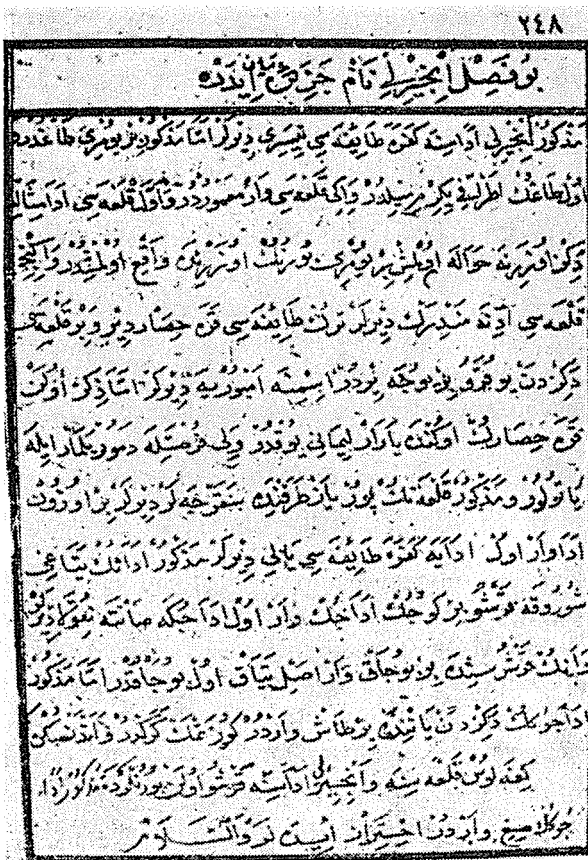 ٢٤٨
بو فصل انجیرلی نام جزیره‌یی بیان ایدر
مذکور انجیرلی اداسنه کفره طایفه سی نیسری دیرلر اما مذکور بر یوقری طاغدر
اول طاغك اطرافی یکرمی میلدر و ایکی قلعه سی وار معموردر و اول قلعه سی ادا
دکز اوزرینه حواله اولمش بر یوقری بورنك اوزرنده واقع اولمشدر و ایکنجی
قلعه سی ادینه مندرك دیرلر ترك طایفه سی قره حصار دیر و بر قلعه
دکزدن یوقرو بر یوجه یردر اسمنه امبوریه دیرلر اما ذکر اولن
قره حصارك اوکنده یارار لیمانی یوقدر ولی فرصتله دمور یلدارایله
یاتولور و مذکور قلعه نك یوز یاز طرفنده دیرلر بر اوزون
ادا وار اول ادایه کفره طایفه سی یالی دیرلر مذکور ادانك یتاغی
شورقه قرشو بر کوچك اداجك وار اول اداجکه
قرشوسنده بر بوجاق وار اصل یتاق اول بوجاقدر اما مذکور
اداجوغك دکزدن یاننده بر طاش واردر کوزتمك کرکدر
کفه لوس قلعه سنه و انجیرلی اداسنه قرشو اولن بورنلرده
واردر احتراز ایده لر والسلام